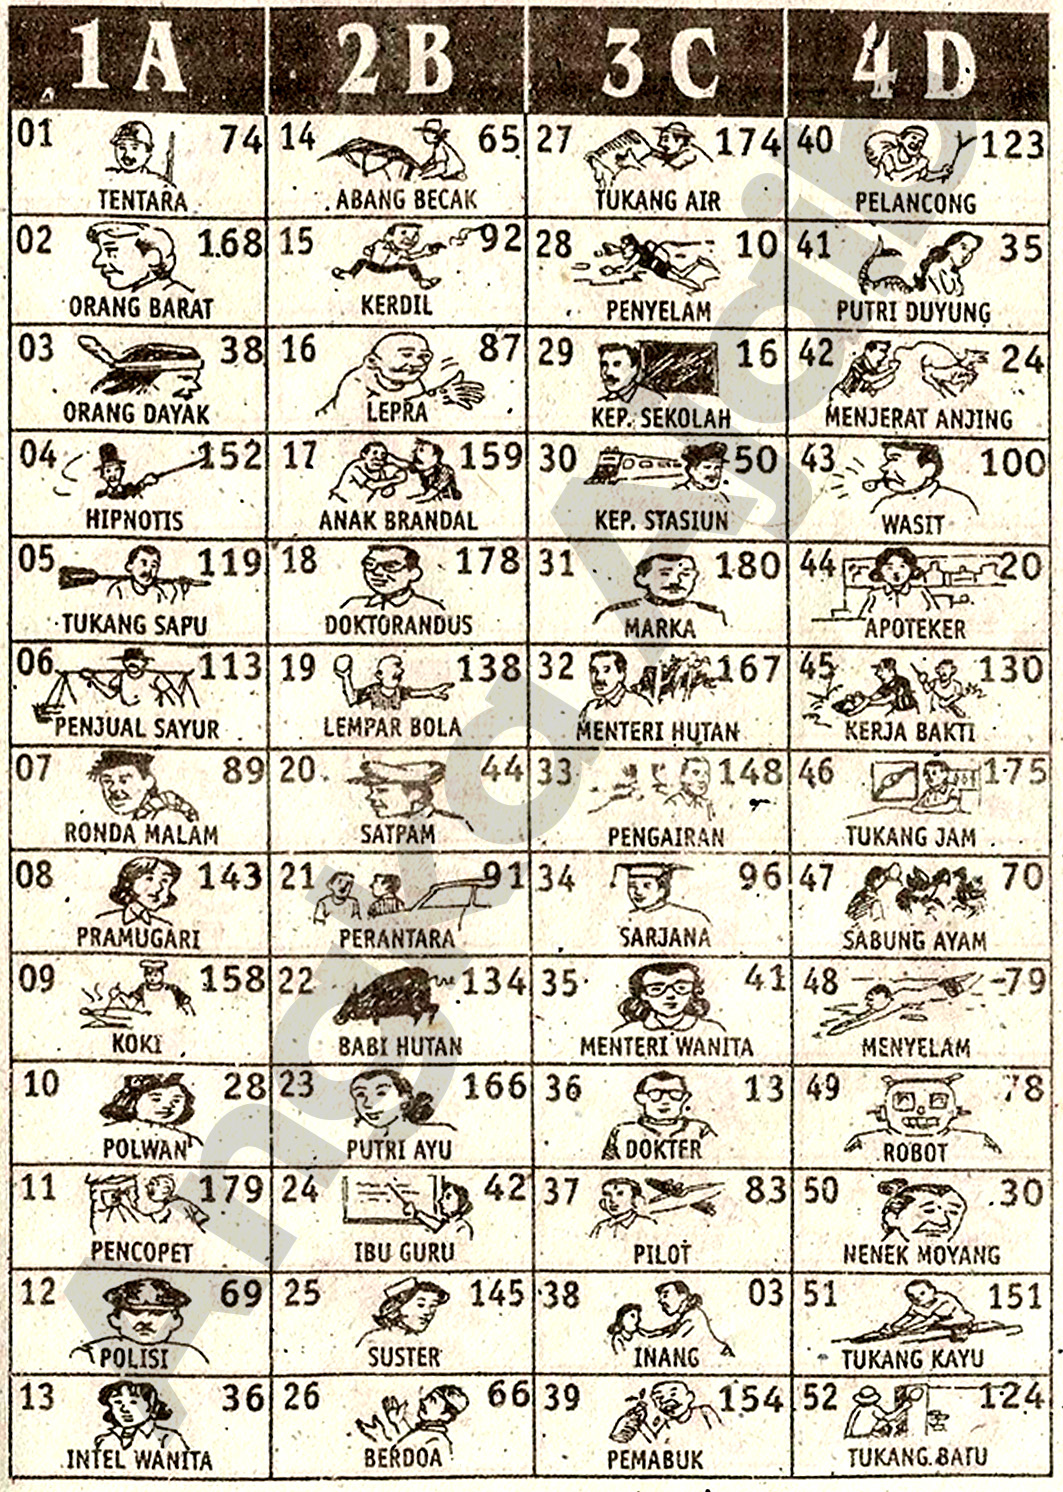 1 A 2 B 3 C 4 D
01 74 14 65 27 174 40 123
TENTARA ABANG BECAK TUKANG AIR PELANCONG
02 168 15 92 28 10 41 35
ORANG BARAT KERDIL PENYELAM PUTRI DUYUNG
03 38 16 87 29 16 42 24
ORANG DAYAK LEPRA KEP. SEKOLAH MENJERAT ANJING
04 152 17 159 30 50 43 100
HIPNOTIS ANAK BRANDAL KEP. STASIUN WASIT
05 119 18 178 31 180 44 20
TUKANG SAPU DOKTORANDUS MARKA APOTEKER
06 113 19 138 32 167 45 130
PENJUAL SAYUR LEMPAR BOLA MENTERI HUTAN KERJA BAKTI
07 89 20 44 33 148 46 175
RONDA MALAM SATPAM PENGAIRAN TUKANG JAM
08 143 21 91 34 96 47 70
PRAMUGARI PERANTARA SARJANA SABUNG AYAM
09 158 22 134 35 41 48 79
KOKI BABI HUTAN MENTERI WANITA MENYELAM
10 28 23 166 36 13 49 78
POLWAN PUTRI AYU DOKTER ROBOT
11 179 24 42 37 83 50 30
PENCOPET IBU GURU PILOT NENEK MOYANG
12 69 25 145 38 03 51 151
POLISI SUSTER INANG TUKANG KAYU
13 36 26 66 39 154 52 124
INTEL WANITA BERDOA PEMABUK TUKANG BATU
Angka Ajaib